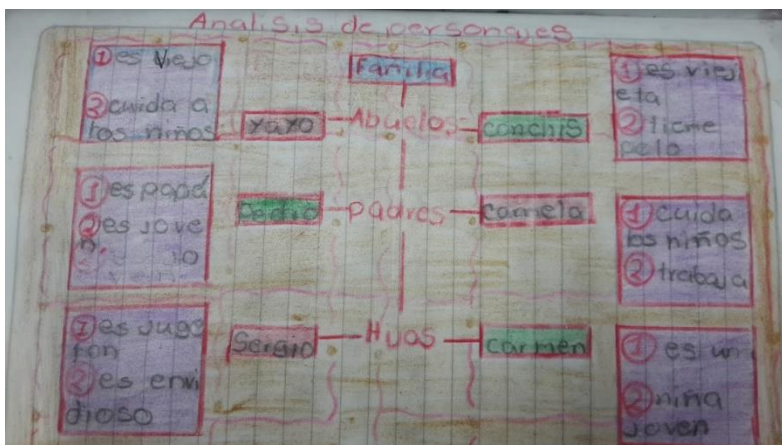 Analisis de personajes
① es viejo
② cuida a
los niños
Familia
yayo
Abuelos
conchis
① es viej
eta
② tiene
pelo
① es papá
② es jove
n
Pedro
padres
camela
① cuida
los niños
② trabaja
① es jugo
ton
② es envi
dioso
Sergio
Hijos
carmen
① es un
② niña
joven